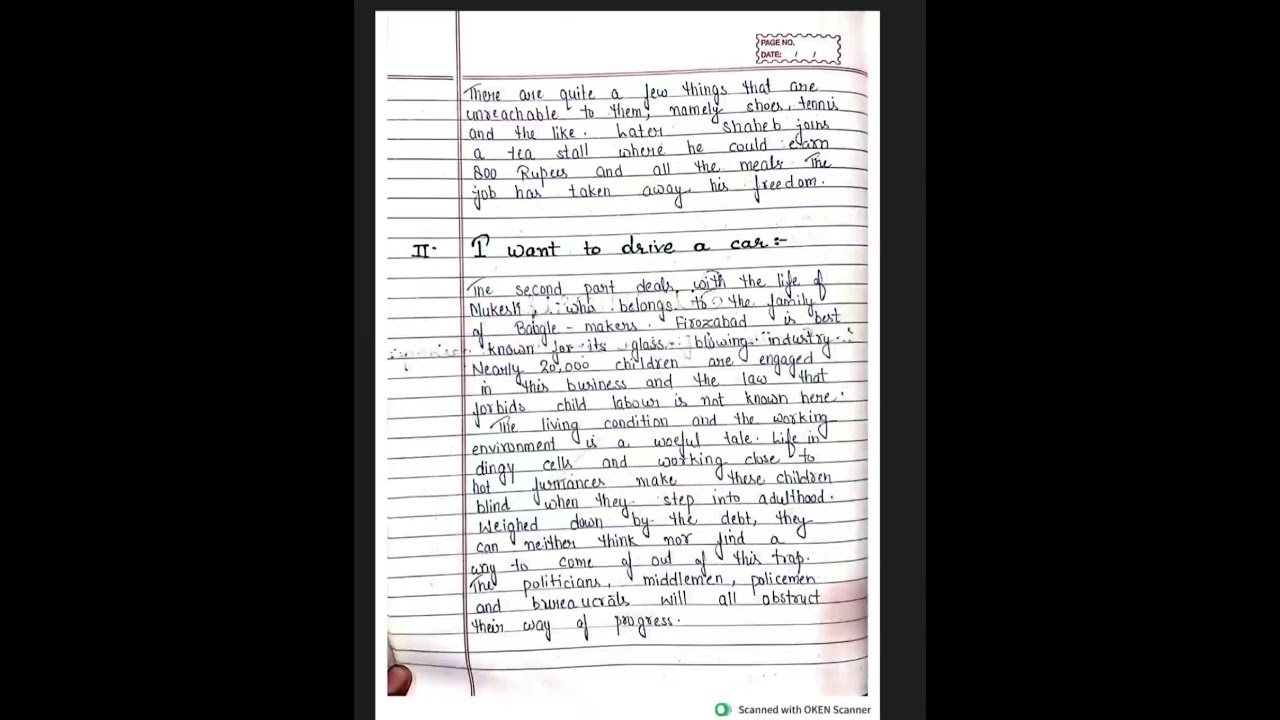 PAGE NO.
DATE: / /
There are quite a few things that are
unreachable to them, namely shoes, tennis
and the like. Later Shaheb joins
a tea stall where he could earn
800 Rupees and all the meals The
job has taken away his freedom.
II. I want to drive a car :-
The second part deals with the life of
Mukesh, who belongs to the family
of Bangle - makers. Firozabad is best
known for its glass - blowing industry.
Nearly 20,000 children are engaged
in this business and the law that
forbids child labour is not known here.
The living condition and the working
environment is a woeful tale. Life in
dingy cells and working close to
hot furnances make these children
blind when they step into adulthood.
Weighed down by the debt, they
can neither think nor find a
way to come of out of this trap.
The politicians, middlemen, policemen
and bureaucrats will all obstruct
their way of progress.
Scanned with OKEN Scanner